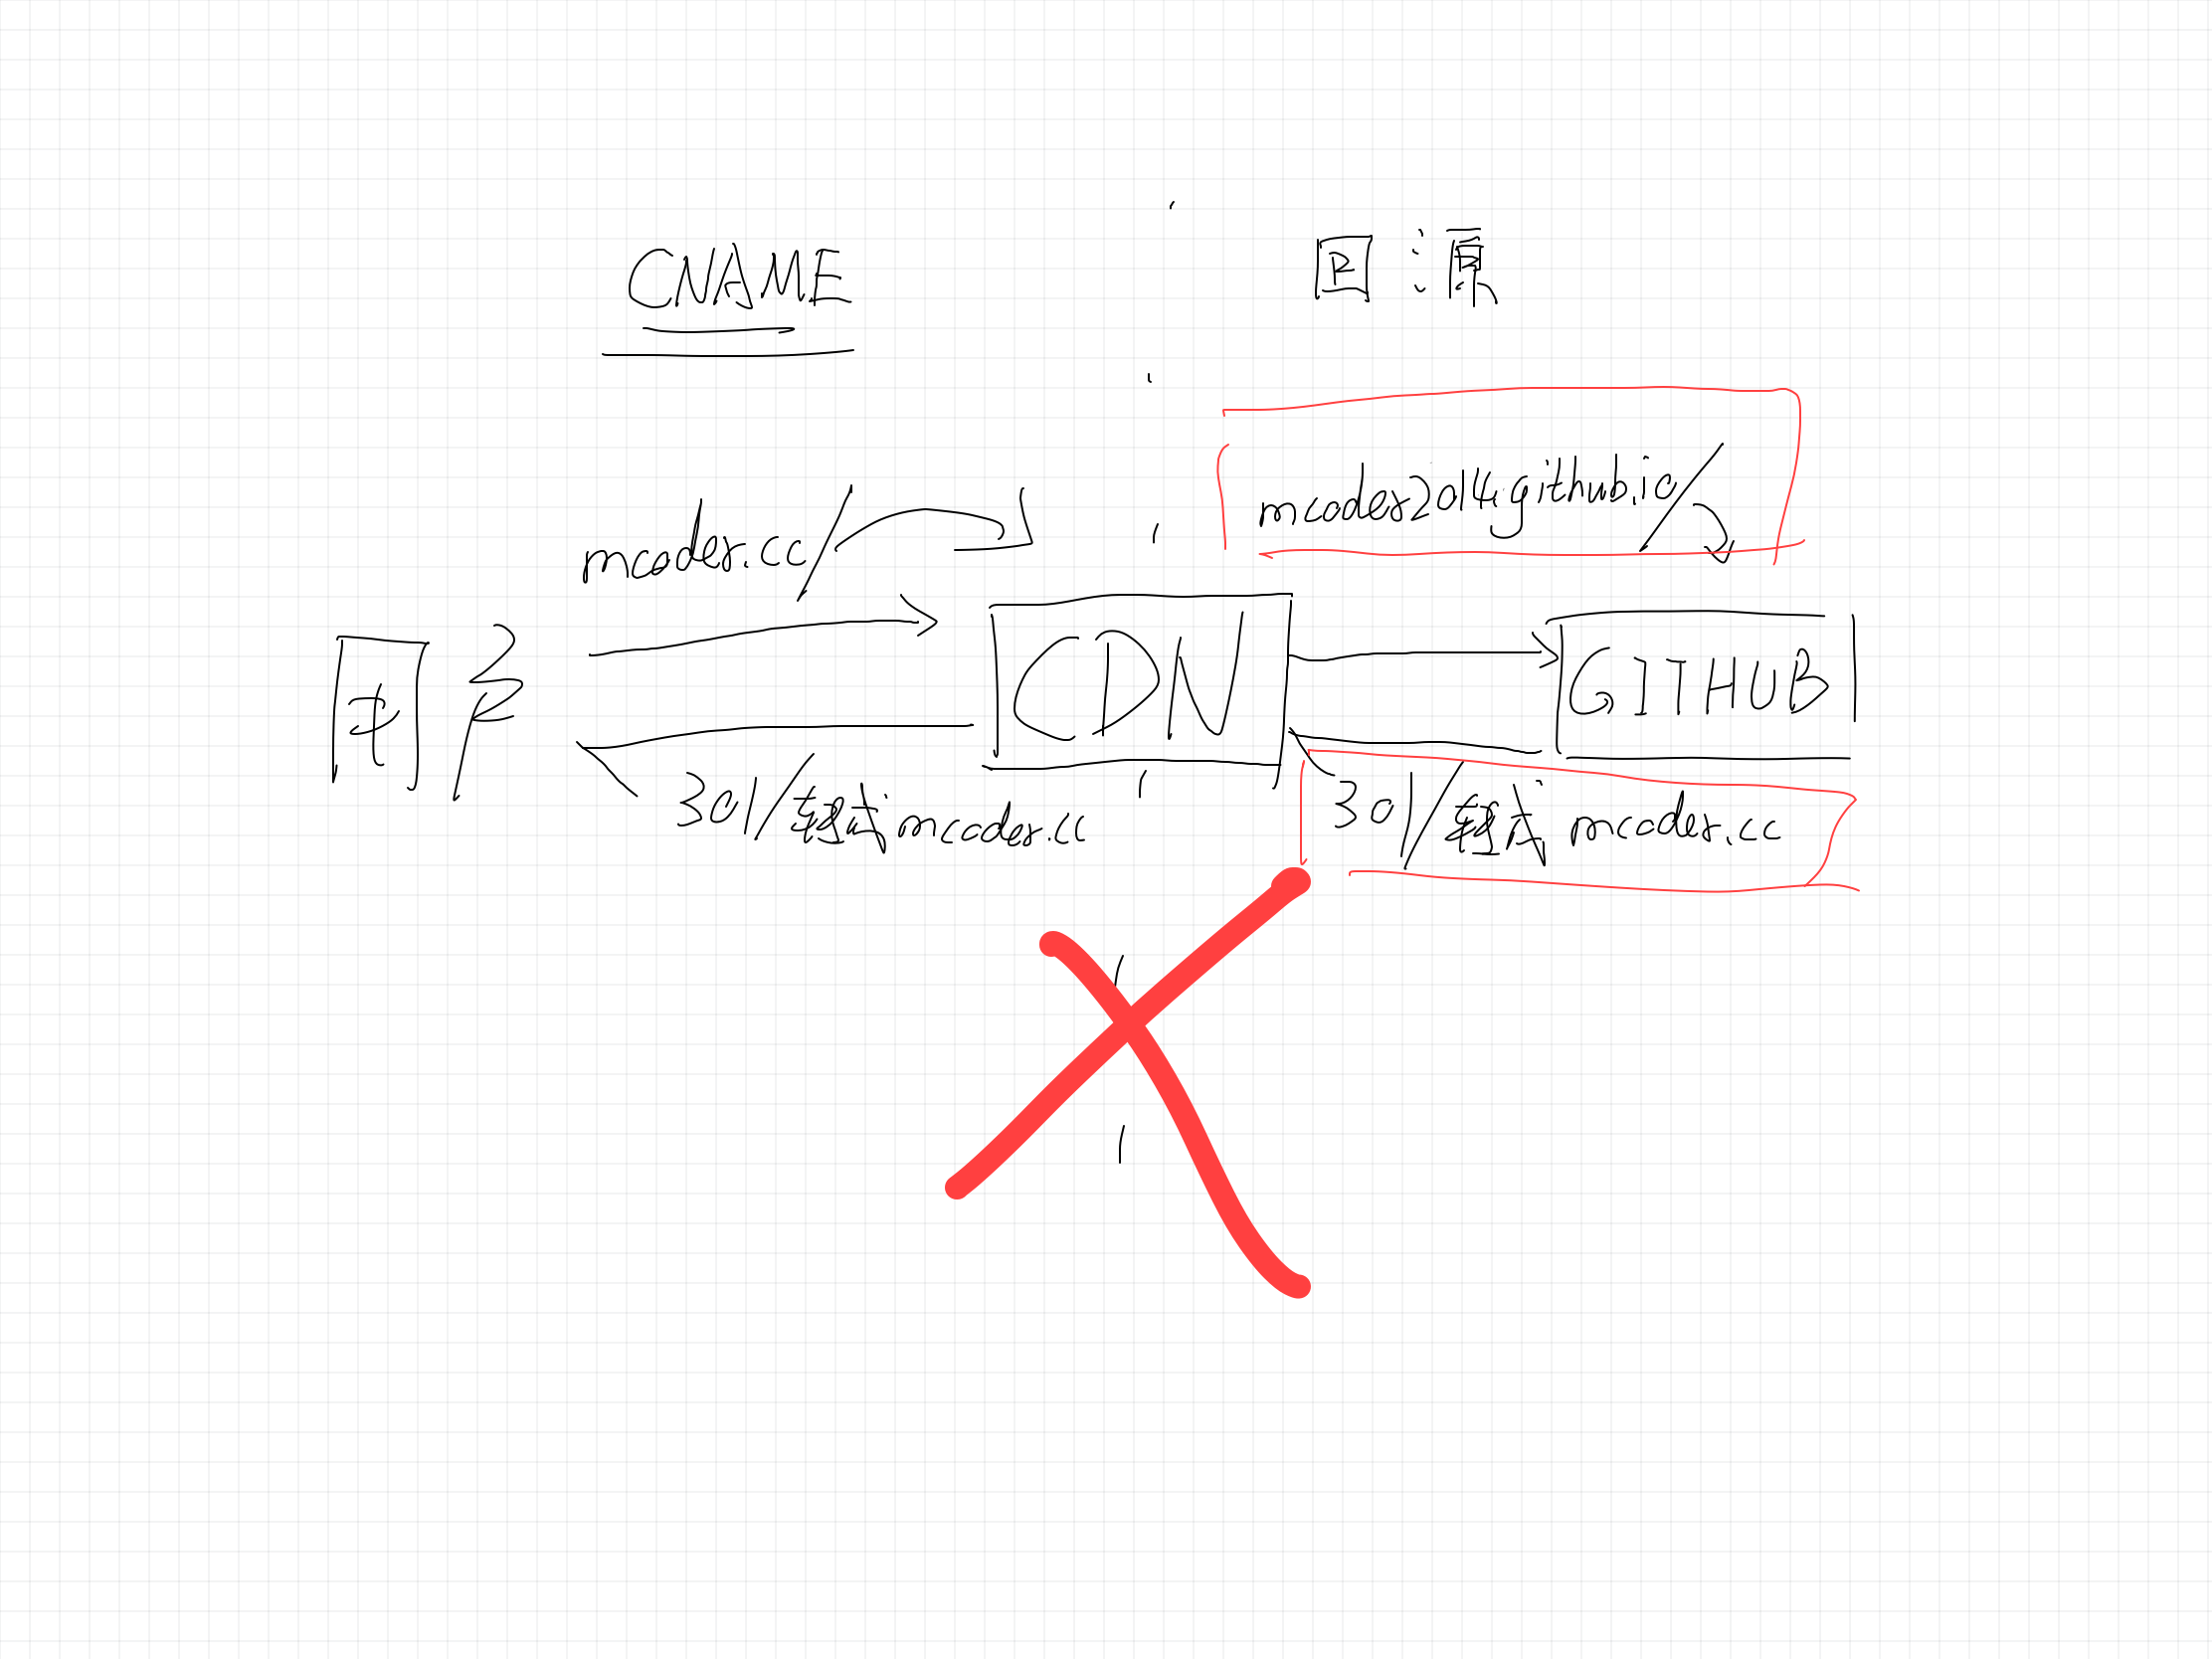 CNAME
回源
mcoder.cc/
mcoder2014.github.io/
用户
CDN
GITHUB
301/转成mcoder.cc
301/转成 mcoder.cc